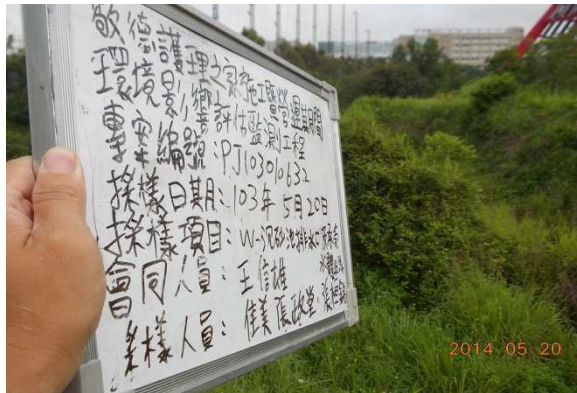 敏德護理之家施工暨營運期間
環境影響評估監測工程
專案編號:PJ103010632
採樣日期:103年5月20日
採樣項目:W-沉砂池排水口
會同人員:王信雄
采樣人員:佳美 張政堂、張
2014 05 20